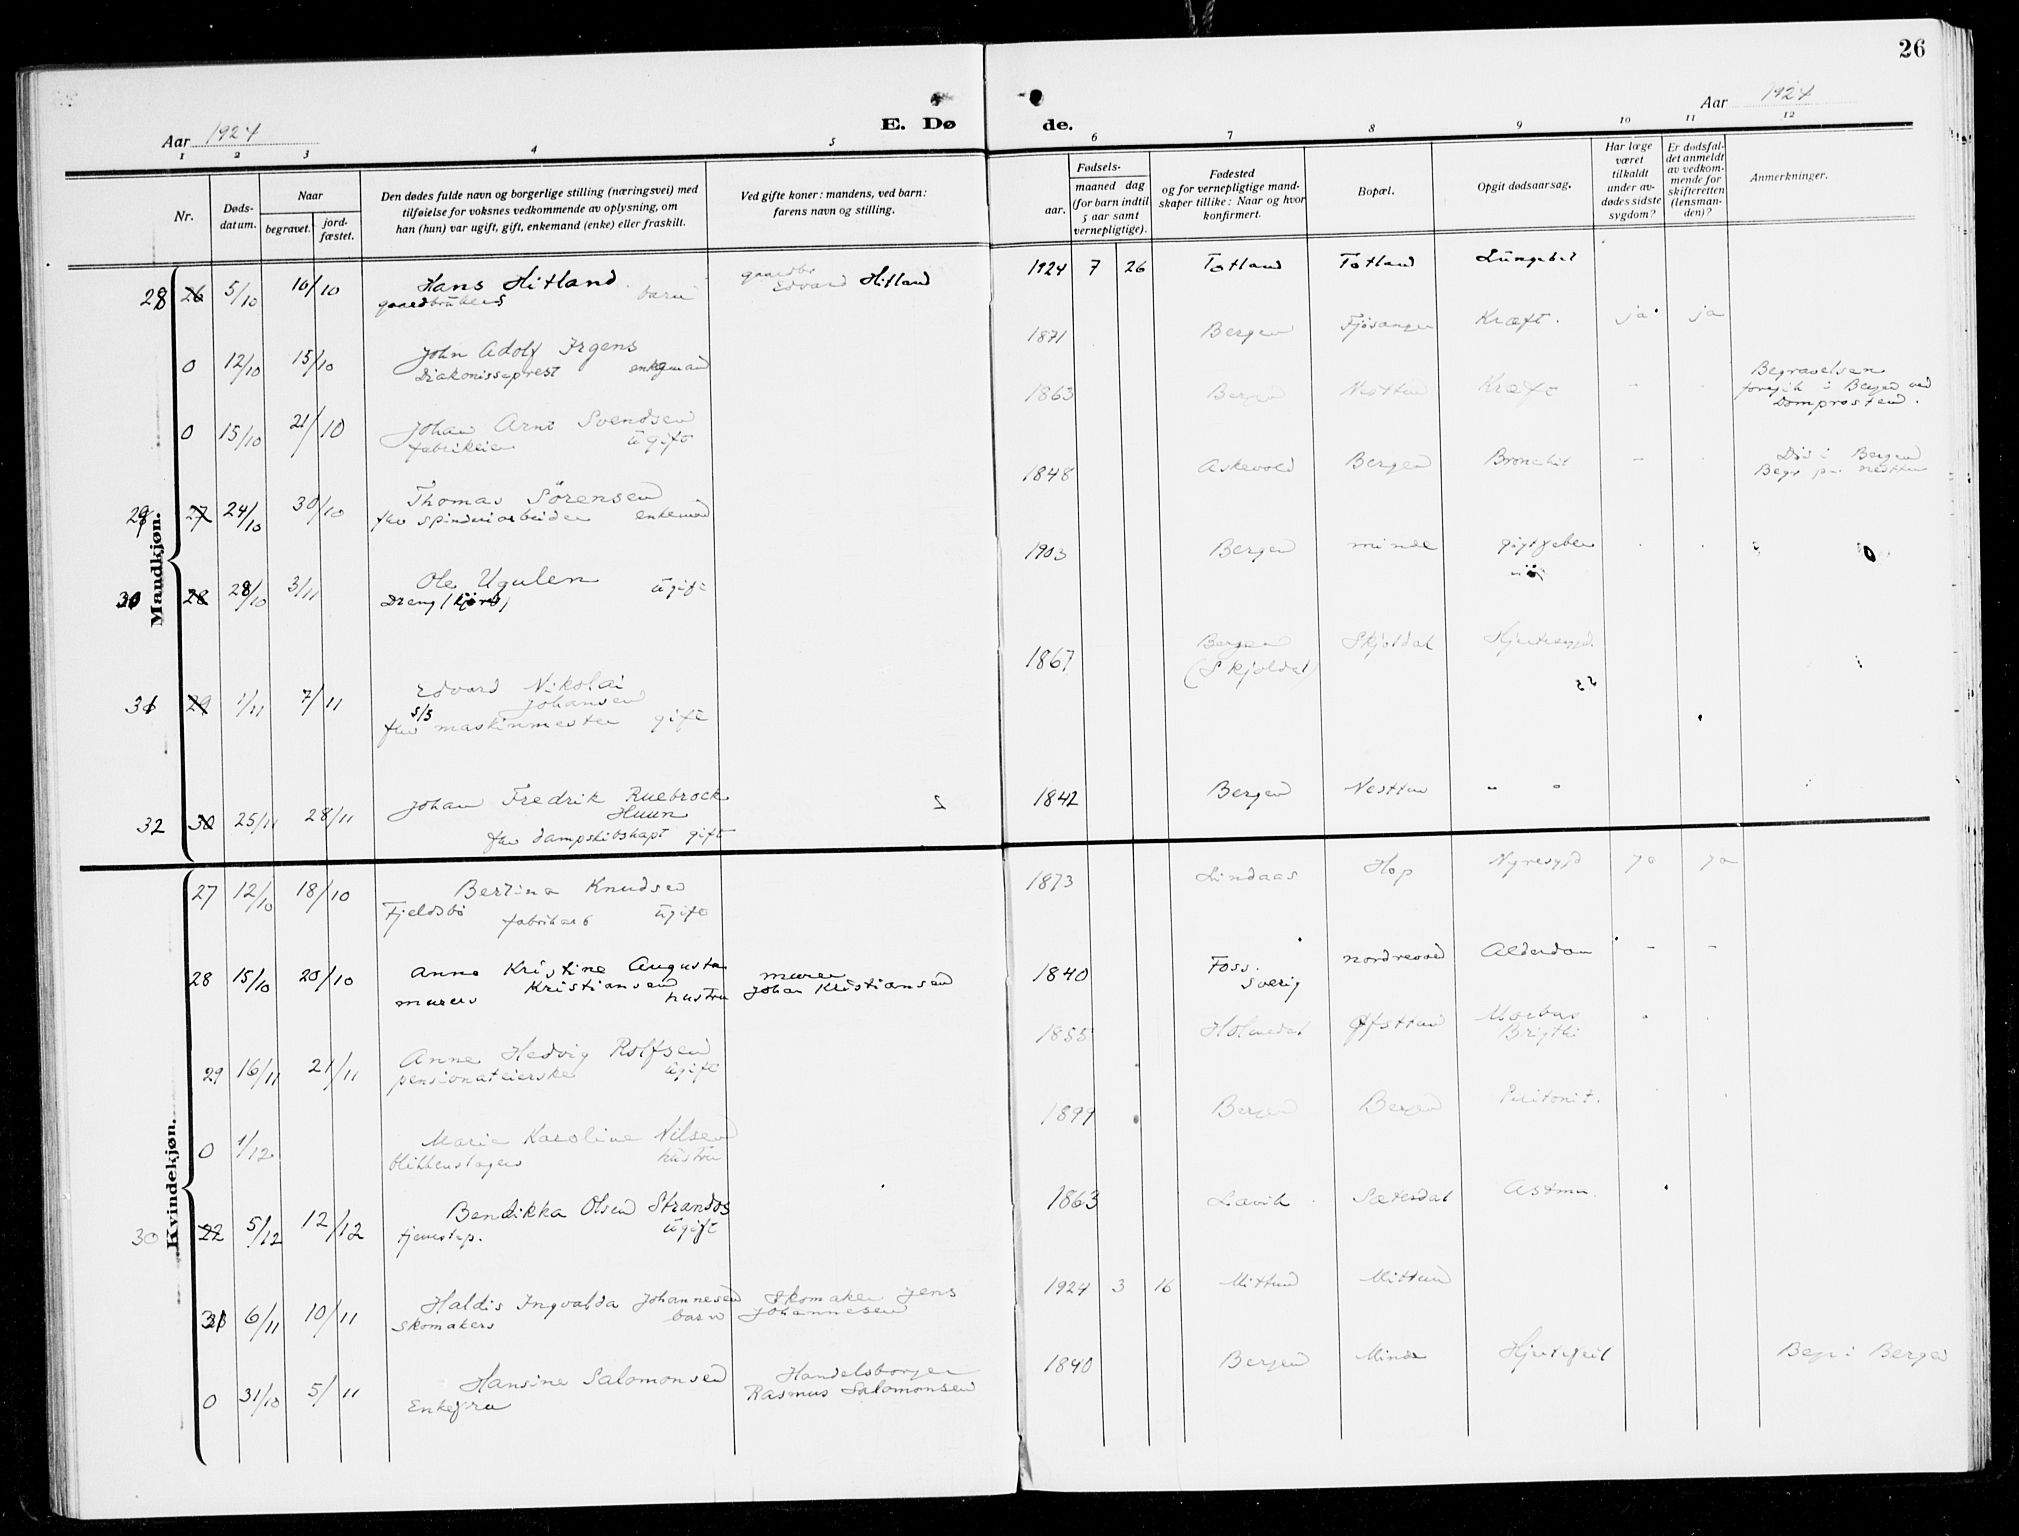 26
Aar 1924
E. Dø
de.
Aar 1924
1 2 3 4 5 6 7 8 9 10 11 12
Nr.
Døds-
datum.
Naar
begravet.
jord-
fæstet.
Den dødes fulde navn og borgerlige stilling (næringsvei) med
tilføielse for voksnes vedkommende av oplysning, om
han (hun) var ugift, gift, enkemand (enke) eller fraskilt.
Ved gifte koner: mandens, ved barn:
farens navn og stilling.
Fødsels-
aar.
maaned dag
(for barn indtil
5 aar samt
vernepligtige).
Fødested
og for vernepligtige mand-
skaper tillike: Naar og hvor
konfirmert.
Bopæl.
Opgit dødsaarsag.
Har læge
været
tilkaldt
under av-
dødes sidste
sygdom?
Er dødsfal-
det anmeldt
av vedkom-
mende for
skifteretten
(lensman-
den)?
Anmerkninger.
Mandkjøn.
28 26 5/10 10/10 Hans Hitland gaardbr 1924 7 26 Totland Totland
gaardbrukers barn Edvard Hitland
0 12/10 15/10 John Adolf Irgens 1871 Bergen Fjøsanger Kræft. ja ja
Diakonisseprest enkemand
0 15/10 21/10 Johan Arnt Svendsen 1863 Bergen Nesttun Kræft - Begravelsen
foregik i Bergen ved
Domprosten.
fabrikeier ugift
27 24/10 30/10 Thomas Sørensen 1848 Askevold Bergen Bronchit - Død i Bergen
Begr paa Nesttun
fhv spinderiarbeider enkemand
28 28/10 3/11 Ole Ugulen 1903 Bergen Minde gigtfeber
Dreng ugift
31 29 1/11 7/11 Edvard Nikolai 1867 Bergen Skjoldal
s/s Johansen (Skjoldal)
fhv maskinmester gift
32 30 25/11 28/11 Johan Fredrik Ruebrock 1842 Bergen Nesttun " "
Huun
fhv dampskibskapt gift
Kvindekjøn.
27 12/10 18/10 Bertina Knudsen 1873 Lindaas Hop Nyresygd ja ja
Fjeldsbø fabrikarb ugift
28 15/10 20/10 Anna Kristine Augusta murer 1840 Foss. Alderdom - -
Kristiansen Johan Kristiansen Sverig
murers hustru
29 16/11 21/11 Anne Hedvig Rolfsen 1855 Holmedal Øfsttun Morbus
Brigthi
pensionateierske ugift
0 1/12 Marie Karoline Nilsen 1899 Bergen Bergen Peritonit.
blikkenslagers hustru
30 22 5/12 12/12 Bendikka Olsen Strandos 1863 Lavik Sætersdal Astma.
tjenestep. ugift
31 6/11 10/11 Haldis Ingvalda Johannesen Skomaker Jens 1924 3 16 Mittun Mittun
skomakers barn Johannesen
0 31/10 5/11 Hansine Salomonsen Handelsborger 1840 Bergen Minde Hjertefeil Begr i Bergen
Enkefru Rasmus Salomonsen